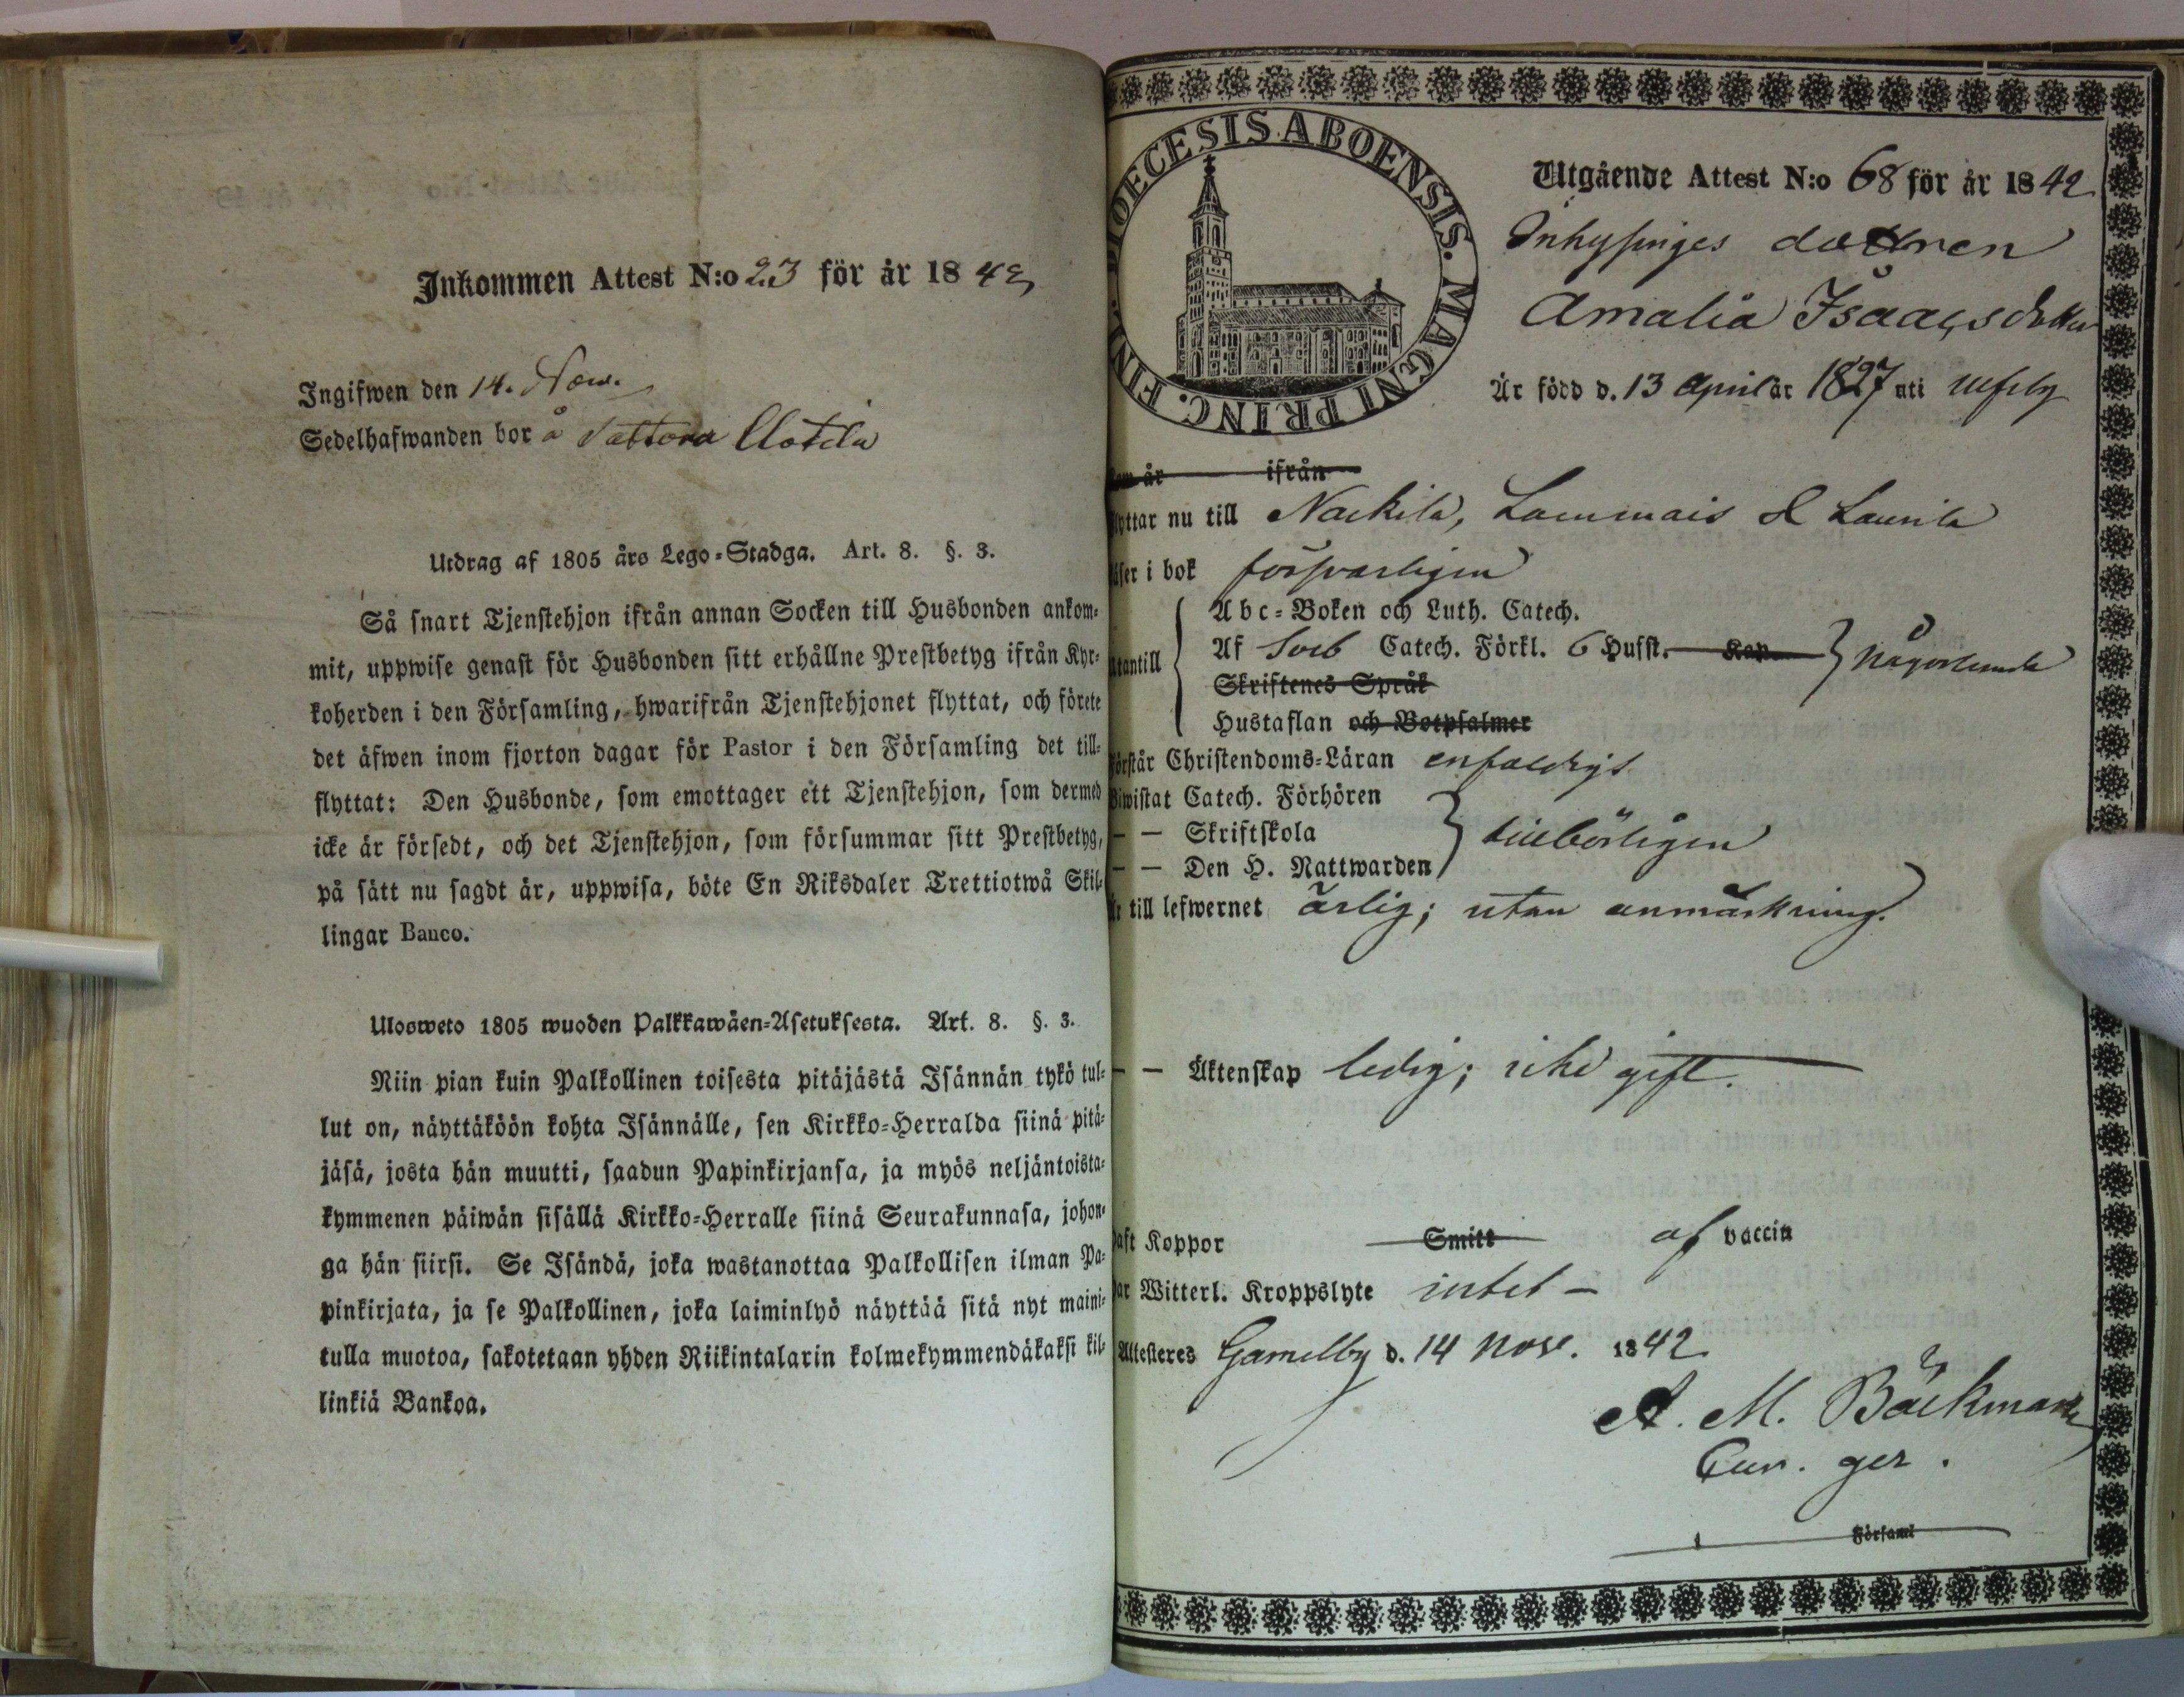 Inkommen Attest N:o 23 för år 1842
Ingifwen den 14. Nov.
Sedelhafwanden bor å Sattora Clotila
Utdrag af 1805 års Lego-Stadga. Art. 8. §. 3.
Så snart Tjenstehjon ifrån annan Socken till Husbonden ankom-
mit, uppwise genast för Husbonden sitt erhållne Prestbetyg ifrån Kyr-
koherden i den Församling, hwarifrån Tjenstehjonet flyttat, och förete
det äfwen inom fjorton dagar för Pastor i den Församling det till-
flyttat: Den Husbonde, som emottager ett Tjenstehjon, som dermed
icke är försedt, och det Tjenstehjon, som försummar sitt Prestbetyg,
på sätt nu sagdt är, uppwisa, böte En Riksdaler Trettiotwå Skil-
lingar Banco.
Ulosweto 1805 wuoden Palkkawäen-Asetuksesta. Art. 8. §. 3.
Niin pian kuin Palkollinen toisesta pitäjästä Isännän tykö tul-
lut on, näyttäköön kohta Isännälle, sen Kirkko-Herralda siinä pitä-
jäsä, josta hän muutti, saadun Papinkirjansa, ja myös neljäntoista-
kymmenen päiwän sisällä Kirkko-Herralle siinä Seurakunnasa, johon-
ga hän siirsi. Se Isändä, joka wastanottaa Palkollisen ilman Pa-
pinkirjata, ja se Palkollinen, joka laiminlyö näyttää sitä nyt maini-
tulla muotoa, sakotetaan yhden Riikintalarin kolmekymmendäkaksi kil-
linkiä Bankoa.
DIOECESIS ABOENSIS. MAGNI PRINC. FINL.
Utgående Attest N:o 68 för år 1842
Inhysinges dottren
Amalia Isaacsdotter
Är född d. 13 April år 1827 uti Ulfsby
Kom år ifrån
flyttar nu till Nackila, Lammais & Laurila
läser i bok försvarligen
Abc-Boken och Luth. Catech.
utantill Af Sveb Catech. Förkl. 6 Hufst. Kap. någorlunda
Skriftenes Språk
Hustaflan och Botpsalmer
Förstår Christendoms-Läran enfaldigt
Biwistat Catech. Förhören
— — Skriftskola tillbörligen
— — Den H. Nattwarden
Är till lefwernet ärlig; utan anmärkning.
— — Äktenskap ledig; icke gift.
Haft Koppor Smitt af vaccin
Har Witterl. Kroppslyte intet —
Attesteres Gamelby d. 14 Nov. 1842
A. M. Bäckman
Cur. ger.
Församl